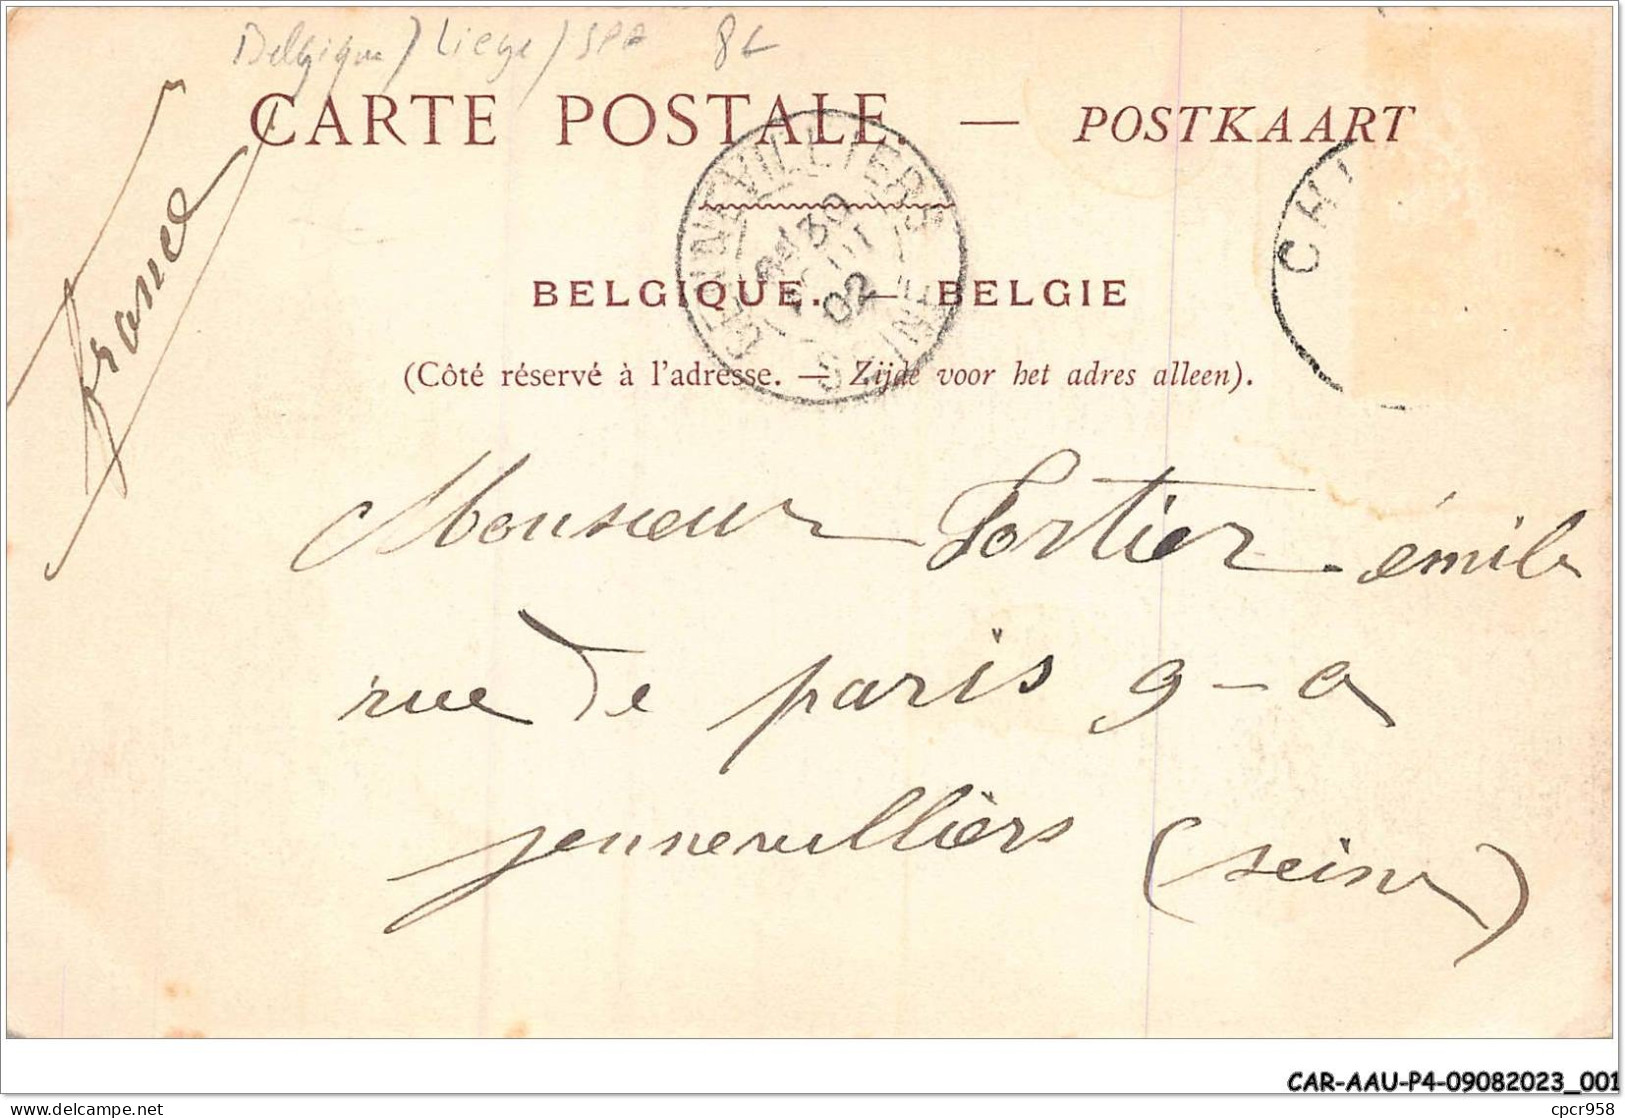 Belgique / Liege / SPA 8€
CARTE POSTALE. — POSTKAART
france
GENNEVILLIERS
30
02
SEINE
CHI
BELGIQUE. — BELGIE
(Côté réservé à l'adresse. — Zijde voor het adres alleen).
Monsieur Fortier émile
rue de paris 9 - a
jennevilliers (seine)
CAR-AAU-P4-09082023_001
delcampe.net
cpcr958